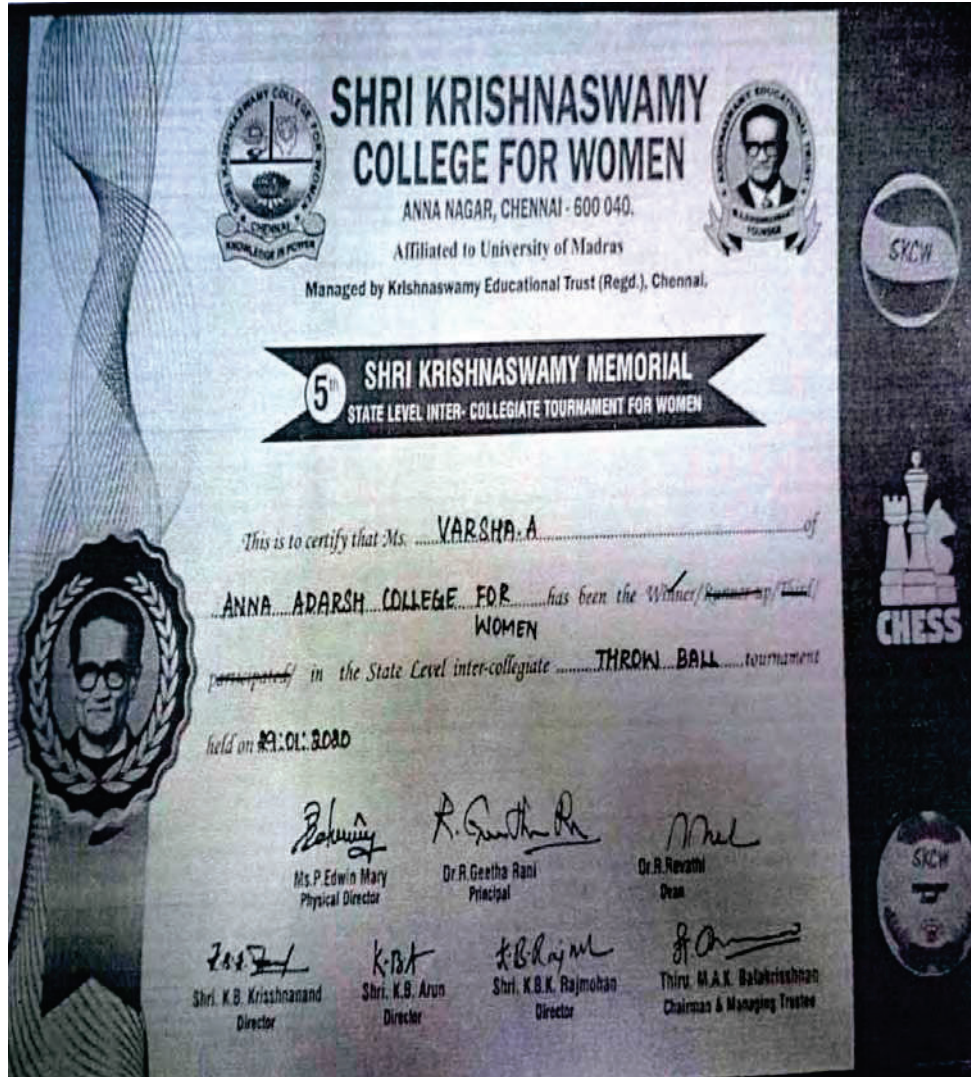 SHRI KRISHNASWAMY
COLLEGE FOR WOMEN
ANNA NAGAR, CHENNAI - 600 040.
Affiliated to University of Madras
Managed by Krishnaswamy Educational Trust (Regd.), Chennai.
SHRI KRISHNASWAMY COLLEGE FOR WOMEN
CHENNAI
KNOWLEDGE IS POWER
KRISHNASWAMY EDUCATIONAL TRUST
FOUNDER
SKCW
5th SHRI KRISHNASWAMY MEMORIAL
STATE LEVEL INTER- COLLEGIATE TOURNAMENT FOR WOMEN
This is to certify that Ms. VARSHA.A of
ANNA ADARSH COLLEGE FOR has been the Winner/Runner up/Third/
WOMEN
participated/ in the State Level inter-collegiate THROW BALL tournament
held on 29.01.2020
CHESS
Ms.P.Edwin Mary
Physical Director
Dr.R.Geetha Rani
Principal
Dr.R.Revathi
Dean
SKCW
Shri. K.B. Krisshnanand
Director
K.B.A
Shri. K.B. Arun
Director
Shri. K.B.K. Rajmohan
Director
Thiru. M.A.K. Balakrisshnan
Chairman & Managing Trustee